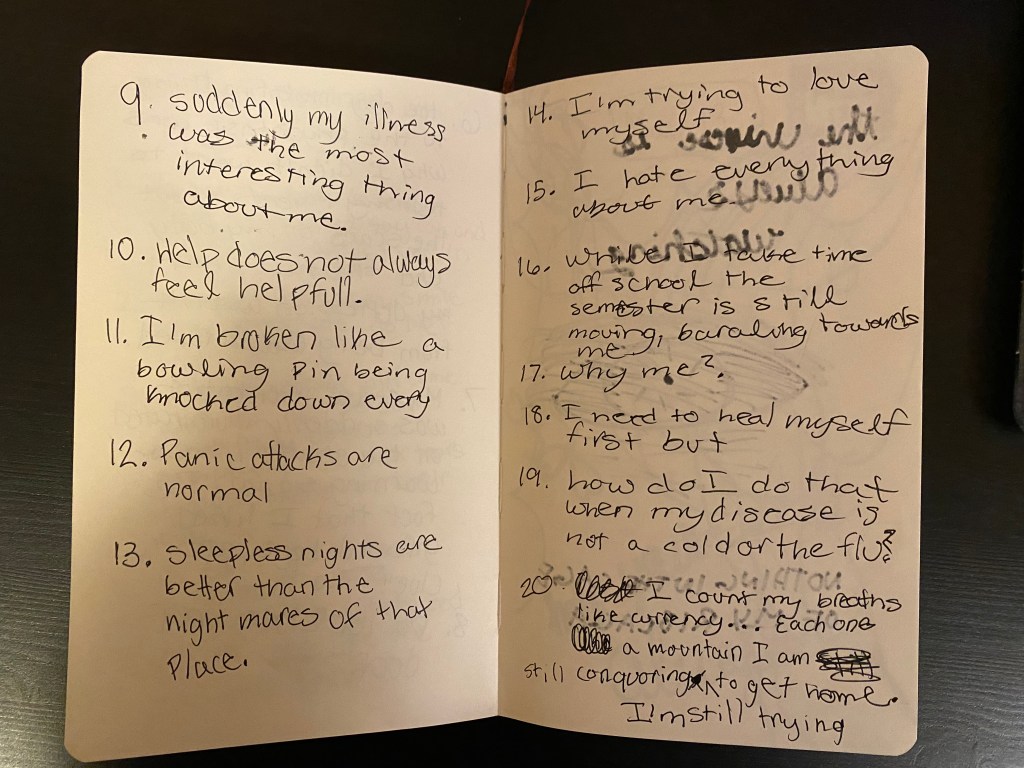 9. suddenly my illness
was the most
interesting thing
about me.
10. Help does not always
feel helpfull.
11. I'm broken like a
bowling pin being
knocked down every
12. Panic attacks are
normal
13. sleepless nights are
better than the
night mares of that
place.
14. I'm trying to love
myself
15. I hate everything
about me.
16. while I take time
off school the
semester is still
moving, towards
me
17. why me?
18. I need to heal myself
first but
19. how do I do that
when my disease is
not a cold or the flu?
20. I count my breaths
like currency... Each one
a mountain I am
still conquoring to get home.
I'm still trying